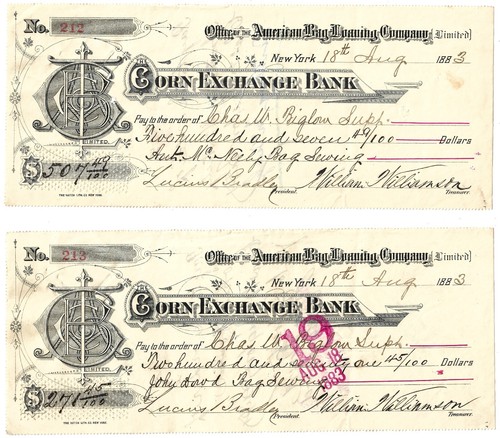 No. 212 Office OF THE American Bag Loaning Company, [Limited]
New York 18th Aug 1883
Corn Exchange Bank
Pay to the order of Chas W. Biglow Supt.
Five hundred and seven 49/100 Dollars
LIMITED.
Bag Sewing
$507 49/100 Lucius Bradley President. William Williamson Treasurer.
No. 213 Office OF THE American Bag Loaning Company, [Limited]
New York 18th Aug 1883
Corn Exchange Bank
Pay to the order of Chas W. Biglow Supt.
Two hundred and seventy one 45/100 Dollars
LIMITED.
John Dowd Bag Sewing
$271 45/100 Lucius Bradley President. William Williamson Treasurer.